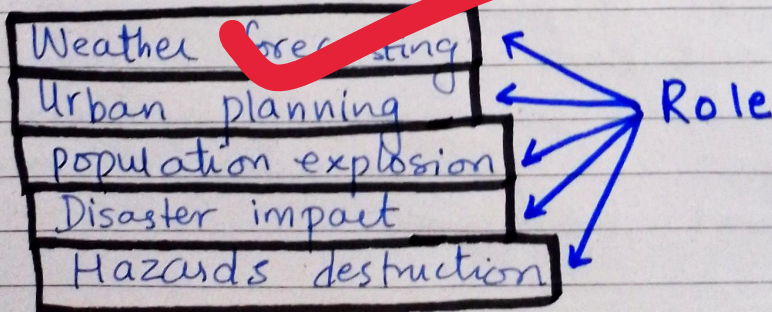 Weather forecasting
Urban planning
Role
population explosion
Disaster impact
Hazards destruction